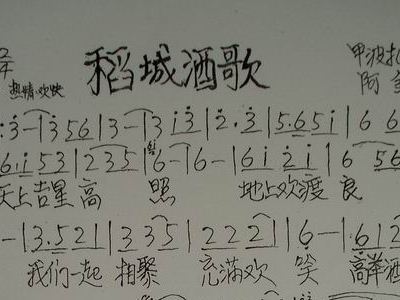 2/4 稻城酒歌 甲波扎
热情·欢快 阿
3-|3 5 6|3-|3 i 3|2·3|5·6 5 i|6 6
6 i 5 3|2 3 5|6-|6-|6 i 2 i|6 5 6
天上吉星高 照 地上欢渡良
-|3·5 2 1|3 3 5|2 2 2|6-|·6 1 2
我们一起相聚 充满欢笑 高举酒